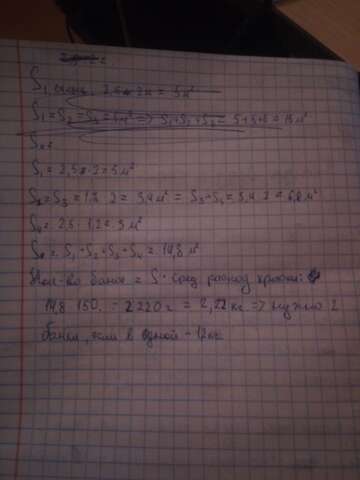 S₁ стены = 2,5 · 2м = 5м²
S₁ = S₂ = S₃ = 5м² => S₁+S₂+S₃ = 5+5+5 = 15 м²
S₁ = 2,5 · 2 = 5 м²
S₂ = S₃ = 1,7 · 2 = 3,4 м² = S₃+S₂ = 3,4 · 2 = 6,8 м²
S₄ = 2,5 · 1,2 = 3 м²
= S₁+S₂+S₃+S₄ = 14,8 м²
Кол-во банок = S · сред расход краски:
14,8 · 150 = 2220 г = 2,22 кг => нужно 2
банки, если в одной - 1,2кг